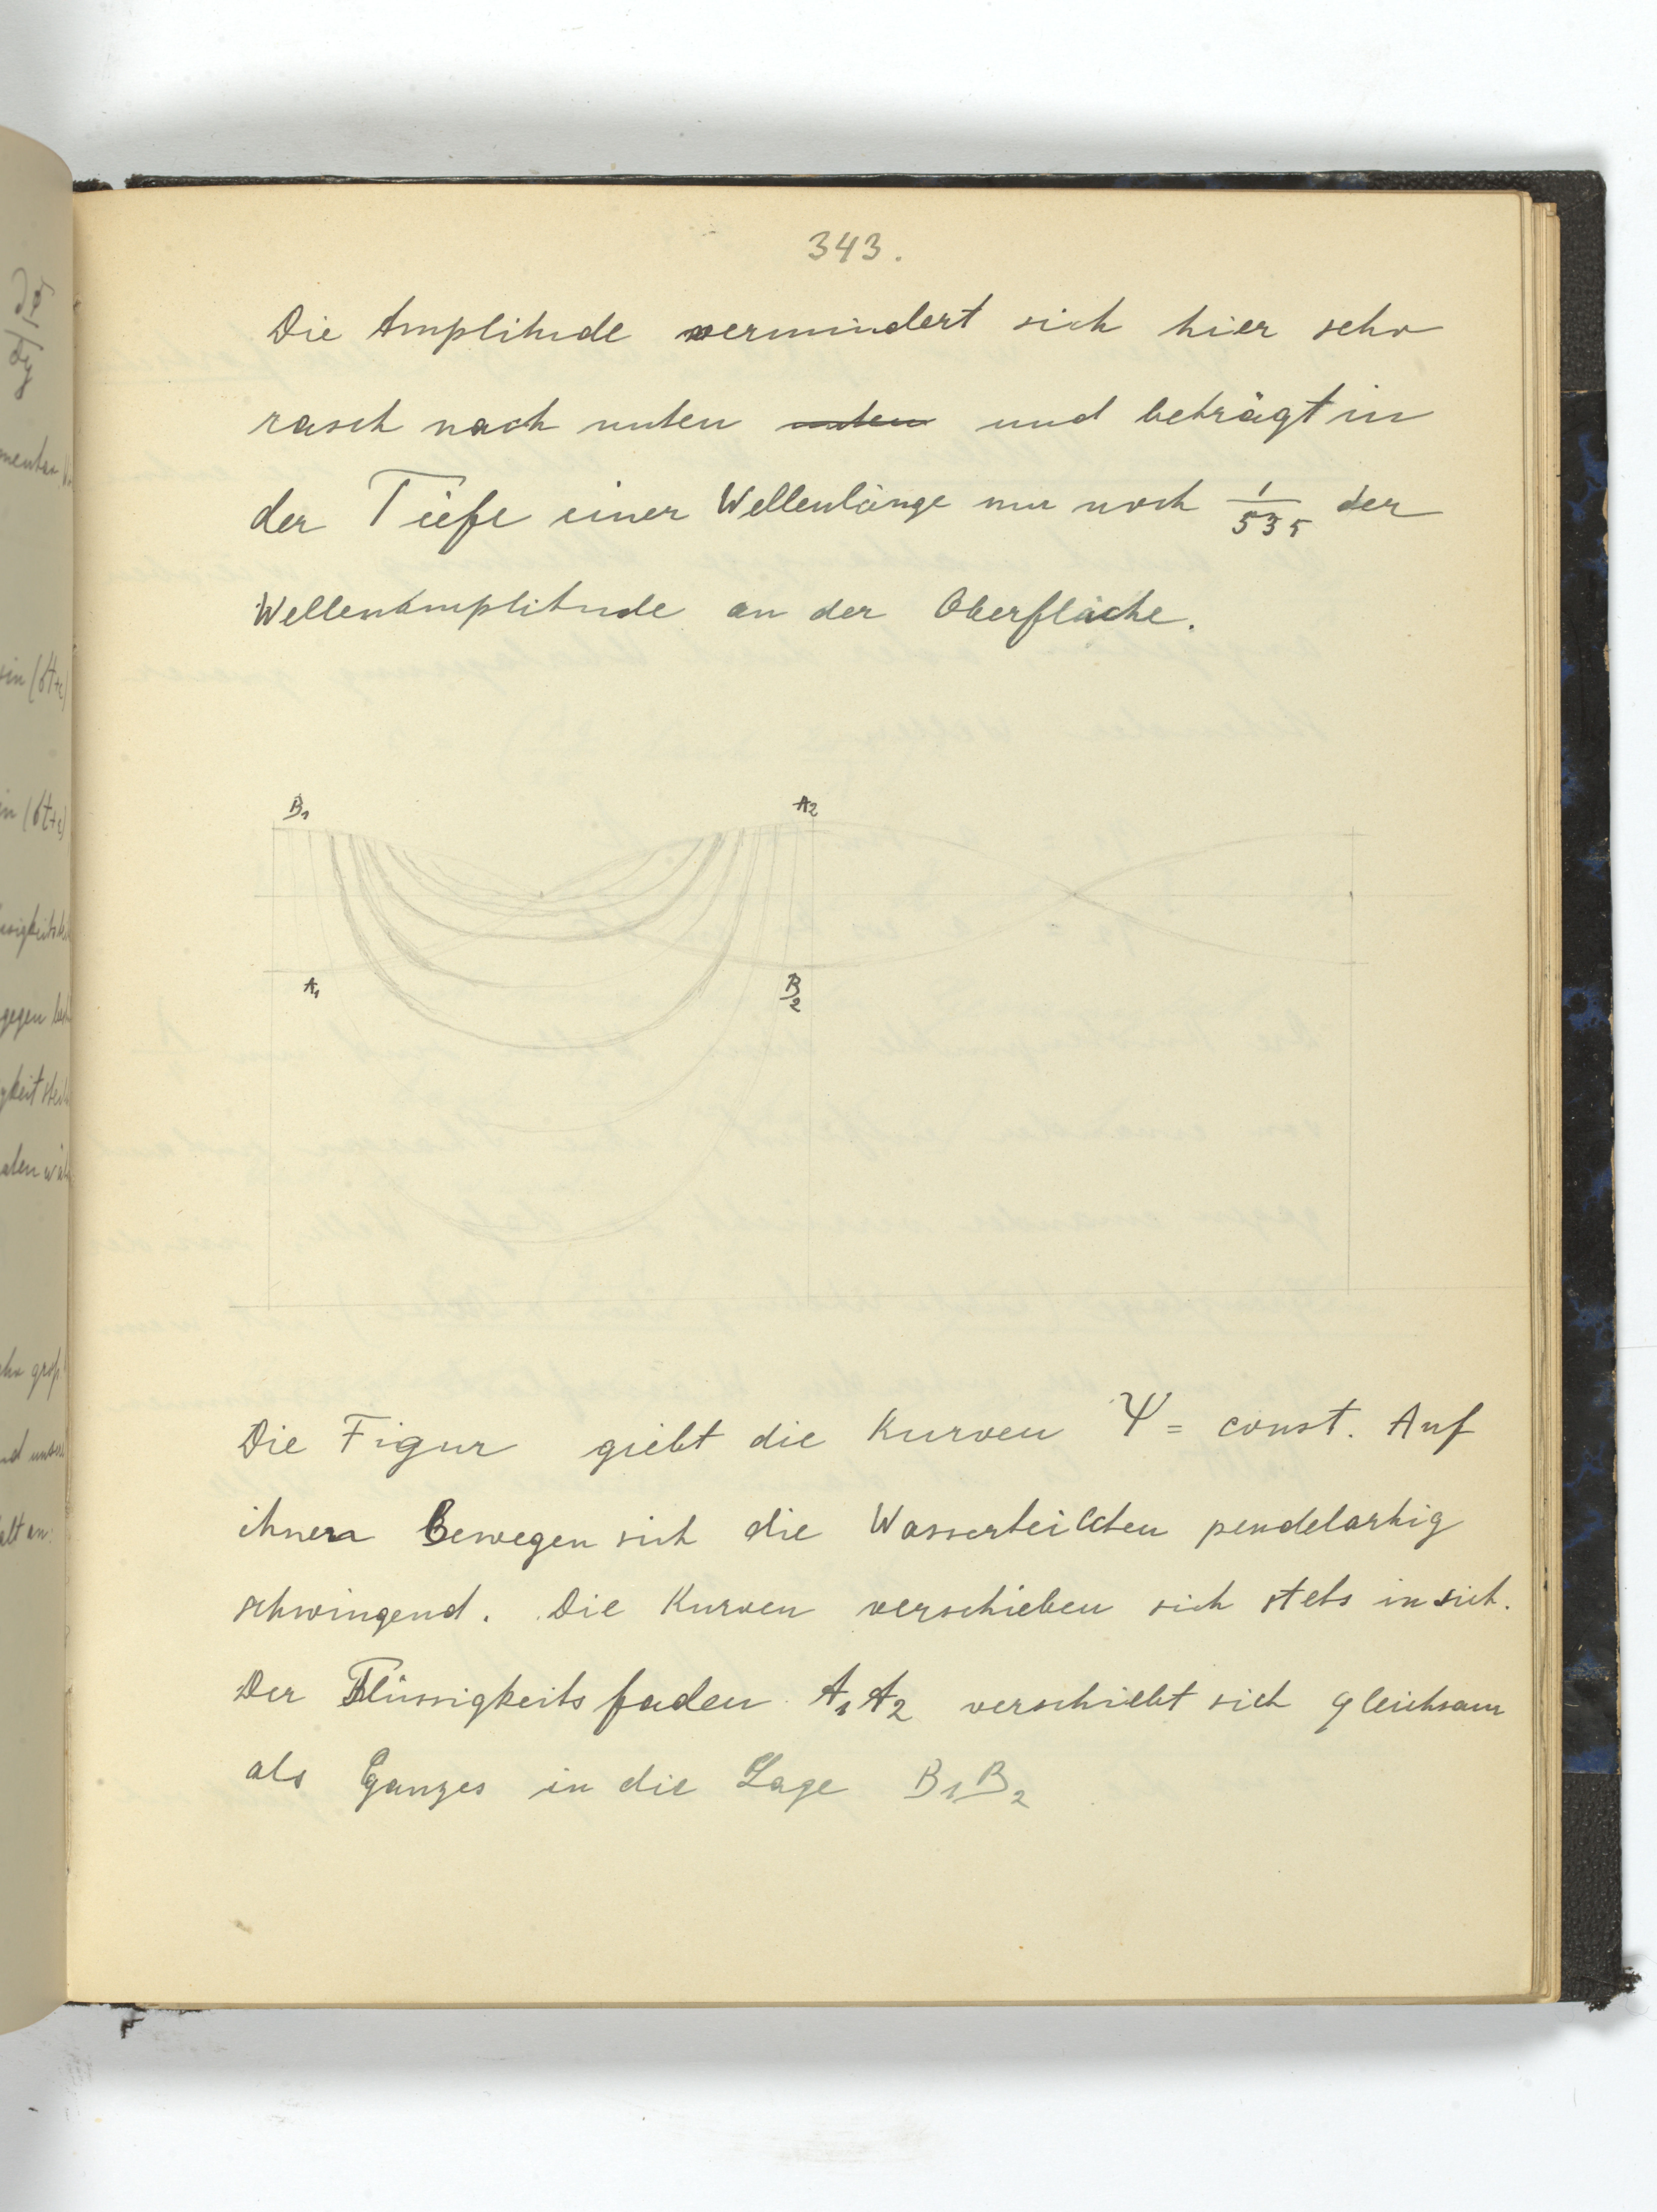 343.
Die Amplitude vermindert sich hier sehr
rasch nach unten unten und beträgt in
der Tiefe einer Wellenlänge nur noch 1/535 der
Wellenamplitude an der Oberfläche.
B1 A2
A1 B2
Die Figur giebt die Kurven Ψ = const. Auf
ihnen bewegen sich die Wasserteilchen pendelartig
schwingend. Die Kurven verschieben sich stets in sich.
Der Flüssigkeitsfaden A1A2 verschiebt sich gleichsam
als Ganzes in die Lage B1B2